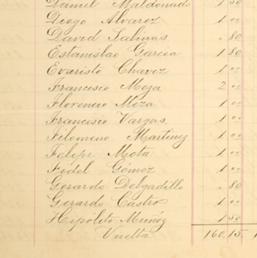 Daniel Maldonado 1 50
Diego Alvarez 1 00
David Salinas . 80
Estanislao Garcia 1 80
Evaristo Chavez 1 00
Francisco Meja 2 00
Florencio Meza 1 00
Francisco Vargas 1 00
Filomeno Martinez 1 00
Felipe Mota 1 00
Fidel Gomez 1 00
Gerardo Delgadillo . 80
Gerardo Castro 1 00
Hipolito Muñoz 1 50
Vuelta 160.15